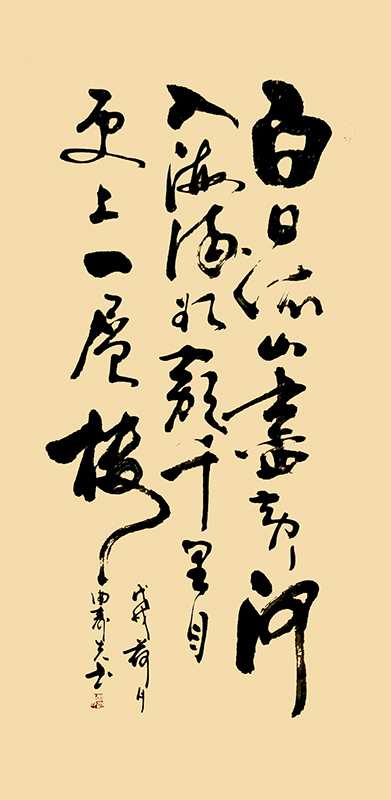 白日依山盡黄河
入海流欲窮千里目
更上一層樓
戊戌荷月
书